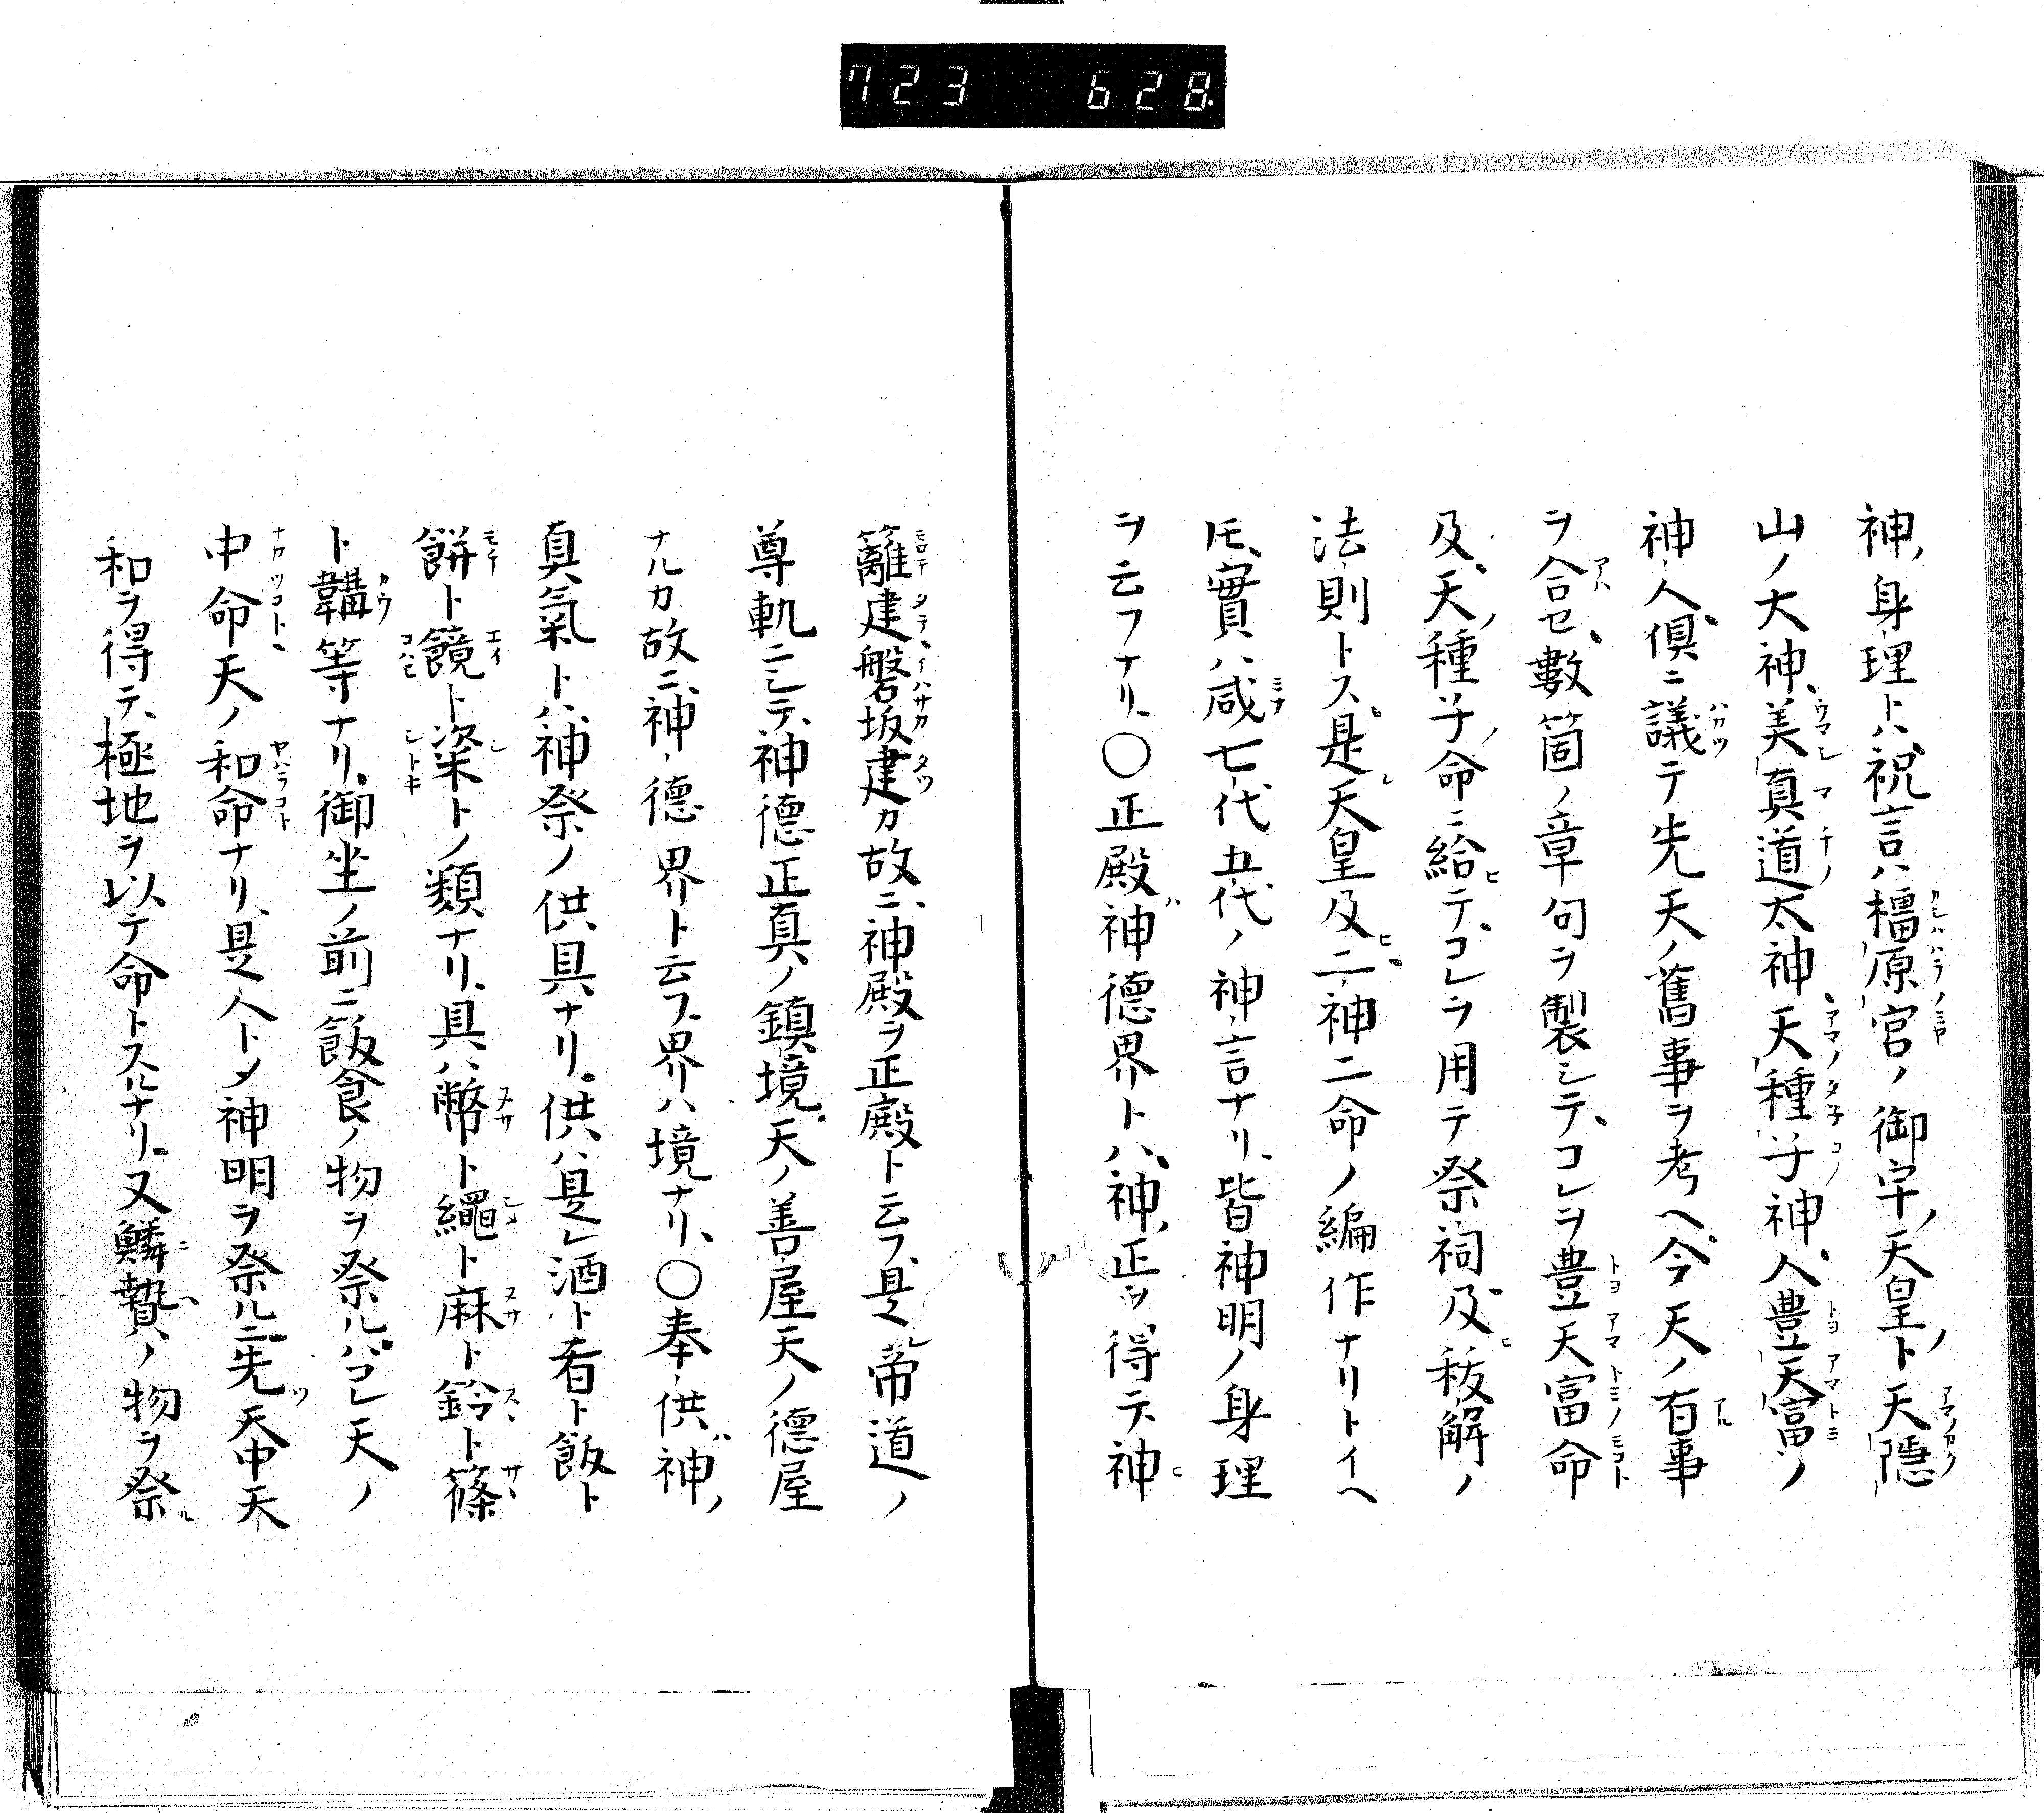 723 628
神ノ身理トハ祝言ハ橿原宮ノ御宇ノ天皇ト天隠
山ノ大神、美真道太神天種子神人豊天富ノ
神人倶ニ議テ先天ノ舊事ヲ考ヘ今天ノ有事
ヲ合セ數箇ノ章句ヲ製シテ、コレヲ豊天富命
及、天ノ種子ノ命ニ給テ、コレヲ用テ祭祠及秡解ノ
法則トス是天皇及二神二命ノ編作ナリトイヘ
𪜈、實ハ咸七代五代ノ神言ナリ、皆神明ノ身理
ヲ云フナリ、〇正殿神德界トハ、神ノ正ヲ得テ神
籬建磐坂建カ故ニ、神殿ヲ正殿ト云フ、是レ帝道ノ
尊軌ニシテ、神德正真ノ鎮境天ノ善屋天ノ德屋
ナルカ故ニ、神ノ德界ト云フ界ハ境ナリ、〇奉供神ノ
真氣トハ、神祭ノ供具ナリ供ハ是レ酒ト肴ト飯ト
餅ト饙ト粢トノ類ナリ、具ハ幣ト繩ト麻ト鈴ト篠
ト韝等ナリ、御坐ノ前ニ飯食ノ物ヲ祭ルハコレ天ノ
中命天ノ和命ナリ、是人トメ神明ヲ祭ルニ先天中天
和ヲ得テ、極地ヲ以テ命トスルナリ又鱗贄ノ物ヲ祭